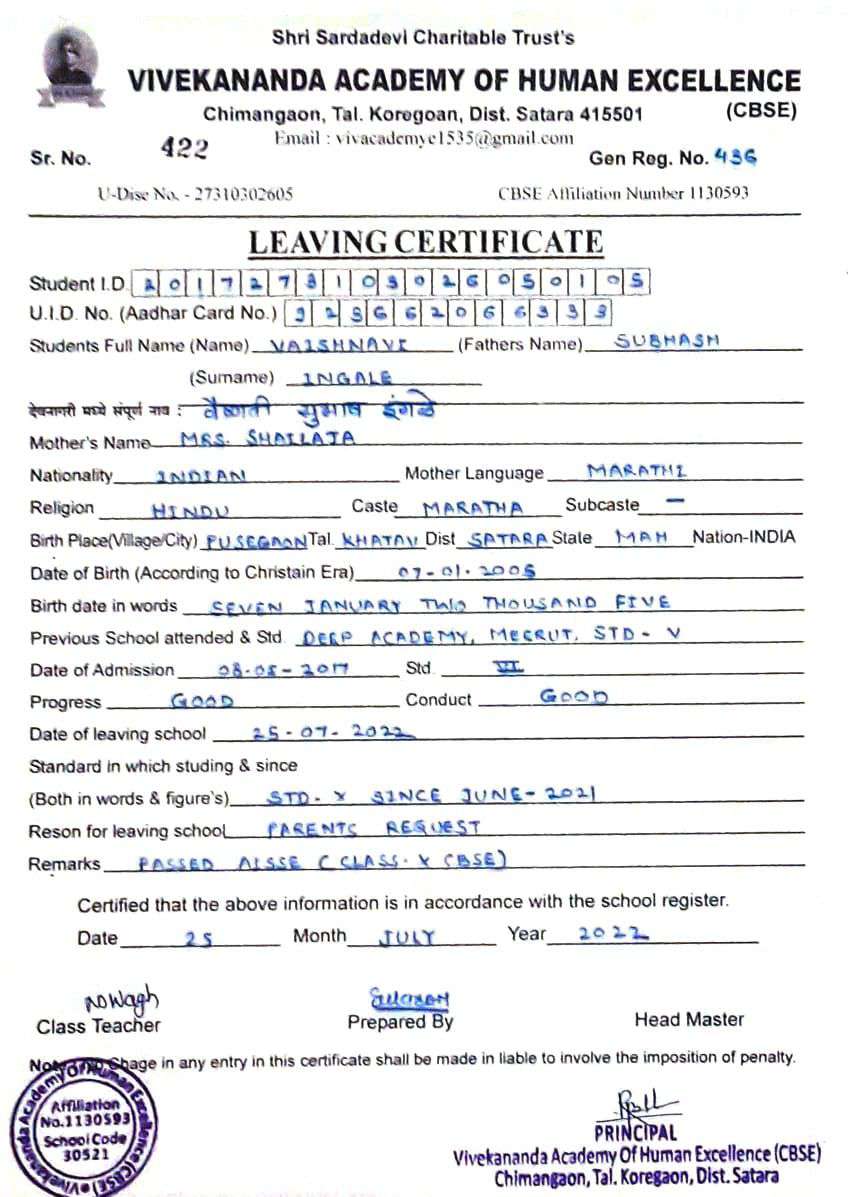 Shri Sardadevi Charitable Trust's
VIVEKANANDA ACADEMY OF HUMAN EXCELLENCE
Chimangaon, Tal. Koregoan, Dist. Satara 415501 (CBSE)
Email : vivacademyc1535@gmail.com
Sr. No. 422 Gen Reg. No. 436
U-Disc No. - 27310302605 CBSE Affiliation Number 1130593
LEAVING CERTIFICATE
Student I.D. 2017273103026050105
U.I.D. No. (Aadhar Card No.) 923662066333
Students Full Name (Name) VAISHNAVI (Fathers Name) SUBHASH
(Surname) INGALE
देवनागरी मध्ये संपूर्ण नाव : वैष्णवी सुभाष इंगळे
Mother's Name MRS. SHAILAJA
Nationality INDIAN Mother Language MARATHI
Religion HINDU Caste MARATHA Subcaste –
Birth Place(Village/City) PUSEGAON Tal. KHATAV Dist SATARA State MAH Nation-INDIA
Date of Birth (According to Christain Era) 07-01-2005
Birth date in words SEVEN JANUARY TWO THOUSAND FIVE
Previous School attended & Std. DEEP ACADEMY, MEERUT, STD - V
Date of Admission 08-05-2017 Std. VI
Progress GOOD Conduct GOOD
Date of leaving school 25-07-2022
Standard in which studing & since
(Both in words & figure's) STD- X SINCE JUNE-2021
Reson for leaving school PARENTS REQUEST
Remarks PASSED AISSE (CLASS-X CBSE)
Certified that the above information is in accordance with the school register.
Date 25 Month JULY Year 2022
Class Teacher Prepared By Head Master
Note: No Chage in any entry in this certificate shall be made in liable to involve the imposition of penalty.
Vivekananda Academy Of Human Excellence (CBSE)
Affiliation
No.1130593
School Code
30521
PRINCIPAL
Vivekananda Academy Of Human Excellence (CBSE)
Chimangaon, Tal. Koregaon, Dist. Satara